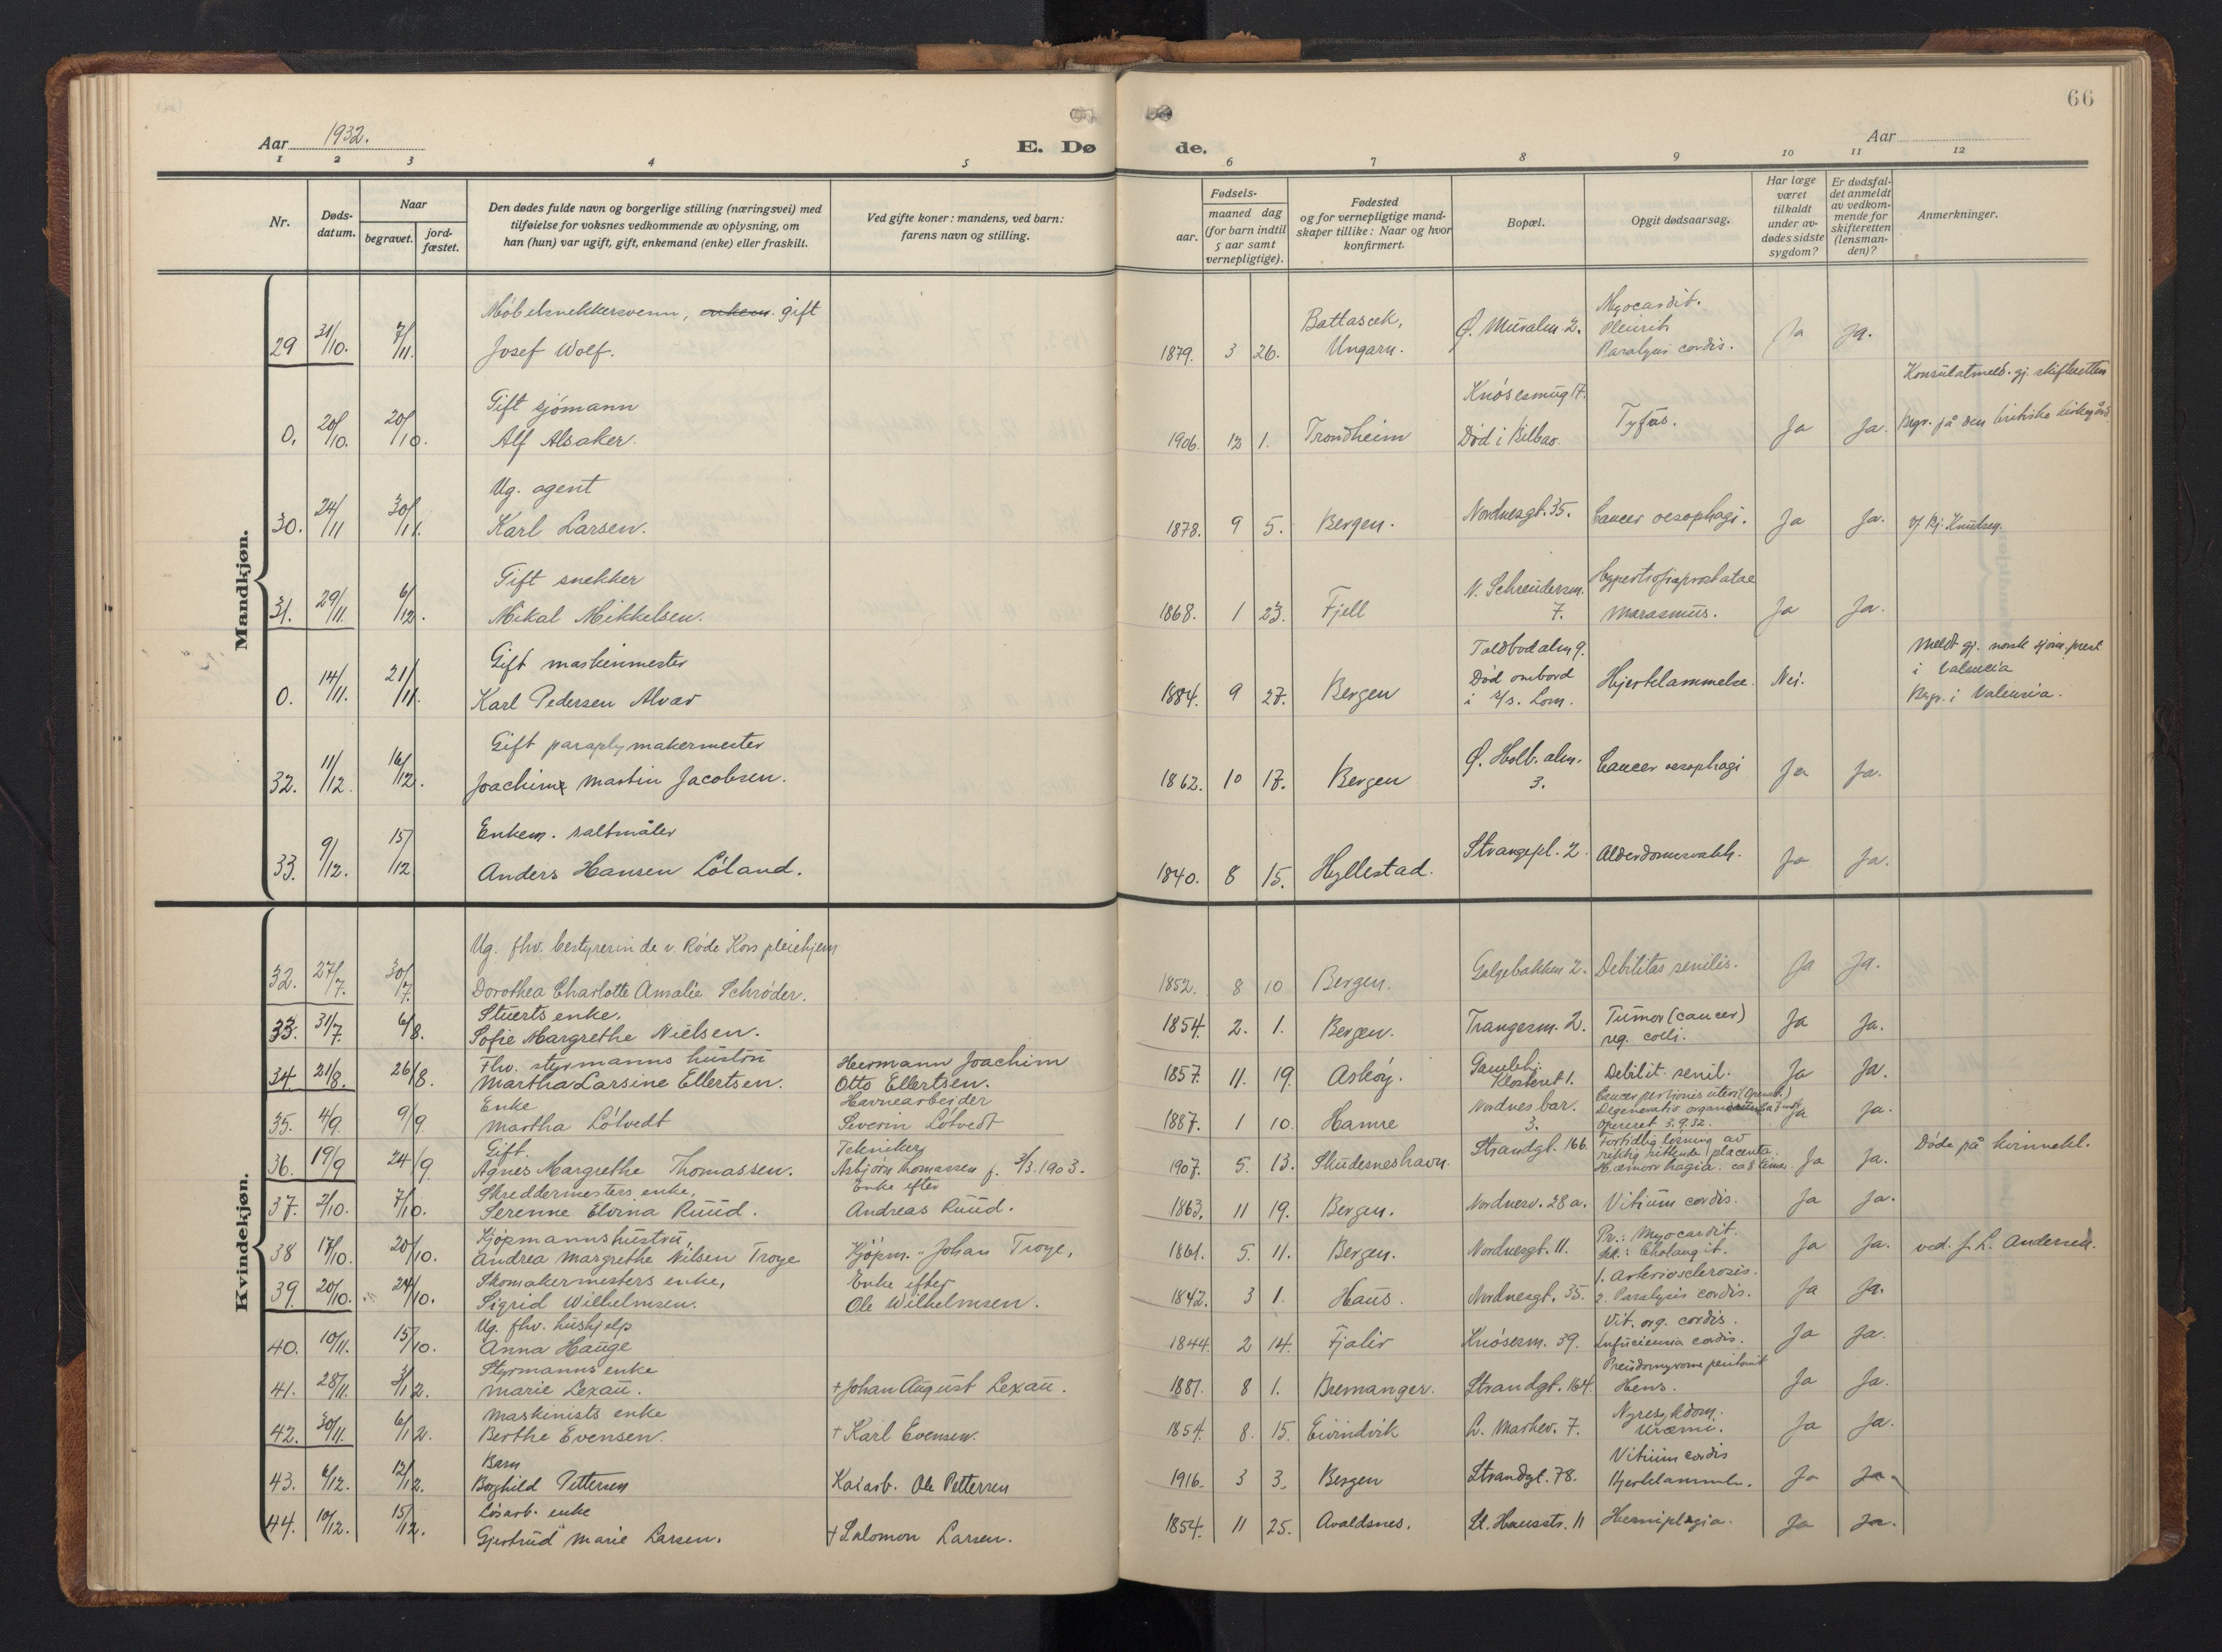 66
Aar 1932.
E. Dø de.
Aar
1 2 3 4 5 6 7 8 9 10 11 12
Nr.
Døds-
datum.
Naar
begravet.
jord-
fæstet.
Den dødes fulde navn og borgerlige stilling (næringsvei) med
tilføielse for voksnes vedkommende av oplysning, om
han (hun) var ugift, gift, enkemand (enke) eller fraskilt.
Ved gifte koner: mandens, ved barn:
farens navn og stilling.
Fødsels-
aar.
maaned dag
(for barn indtil
5 aar samt
vernepligtige).
Fødested
og for vernepligtige mand-
skaper tillike: Naar og hvor
konfirmert.
Bopæl.
Opgit dødsaarsag.
Har læge
været
tilkaldt
under av-
dødes sidste
sygdom?
Er dødsfal-
det anmeldt
av vedkom-
mende for
skifteretten
(lensman-
den)?
Anmerkninger.
Mandkjøn.
Møbelsnekkersvenn, enkem. gift
29 31/10. 7/11. Josef Wolf. 1879. 3 26. Battascek,
Ungarn. Ø. Muralm. 2. Myocardit.
Pleurit
Paralysis cordis. Ja Ja.
Gift sjømann
0. 20/10. 20/10. Alf Alsaker. 1906. 12 1. Trondheim Knøsesmug 17.
Død i Bilbao. Tyfus. Ja Ja. Konsulatmeld. gj. skifteretten
Begr. på den britiske kirkegård
Ug. agent
30. 24/11 30/11. Karl Larsen. 1878. 9 5. Bergen. Nordnesgt. 35. Cancer oesophagi. Ja Ja. v/ Bj. Knudsen.
Gift snekker
31. 29/11. 6/12. Mikal Mikkelsen. 1868. 1 23. Fjell N. Schreudersm.
7. Hypertrofia prostatae
Marasmus. Ja Ja.
Gift maskinmester
0. 14/11. 21/11. Karl Pedersen Alvær 1884. 9 27. Bergen Toldbodalm 9.
Død ombord
i s/s. Lom. Hjertelammelse. Nei. Meldt gj. norsk sjøm. prest
i Valencia
Begr. i Valencia.
Gift paraplymakermester
32. 11/12. 16/12. Joachim Martin Jacobsen. 1862. 10 17. Bergen Ø. Holb. alm.
3. Cancer oesophagi Ja Ja.
Enkem. saltmåler
33. 9/12. 15/12 Anders Hansen Løland. 1840. 8 15. Hyllestad. Strangepl. 2. Alderdomssvakh. Ja Ja.
Kvindekjøn.
Ug. fhv. bestyrerinde v. Røde Kors pleiehjem
32. 27/7. 30/7. Dorothea Charlotte Amalie Schrøder. 1852. 8 10 Bergen. Galgebakken 2. Debilitas senilis. Ja Ja.
Stuerts enke.
33. 31/7. 6/8. Sofie Margrethe Nielsen. 1854. 2. 1. Bergen. Trangesm. 2. Tumor (cancer)
reg. colli. Ja Ja.
Fhv. styrmanns hustru
34. 21/8. 26/8. Martha Larsine Ellertsen. Hermann Joachim
Otto Ellertsen. 1857. 11. 19. Askøy. Gamlehj.
Klosteret 1. Debilit. senil. Ja Ja.
Enke
35. 4/9. 9/9. Martha Løtvedt Havnearbeider
Severin Løtvedt 1887. 1 10. Hamre Nordnesbar.
3. Cancer portionis uteri (Operat.)
Degeneratio
Operert 3.9.32. Ja Ja.
Gift.
36. 19/9 24/9. Agnes Margrethe Thomassen. Tekniker
Asbjørn Thomassen f. 3/3.1903. 1907. 5. 13. Skudeneshavn. Strandgt. 166. Fortidlig løsning av
riktig sittende placenta.
Hæmorrhagia. ca 8 timer. Ja Ja. Døde på kvinnekl.
Skreddermesters enke.
37. 2/10. 7/10. Serenne Elvina Ruud. Enke efter
Andreas Ruud. 1863. 11 19. Bergen. Nordnesv. 28 a. Vitium cordis. Ja Ja.
Kjøpmannshustru,
38 17/10. 20/10. Andrea Margrethe Nilsen Troye Kjøpm. Johan Troye. 1861. 5. 11. Bergen. Nordnesgt. 11. Pr.: Myocardit.
Sek.: Cholangit. Ja Ja. ved. f. L. Andersen.
Skomakermesters enke,
39. 20/10. 24/10. Sigrid Wilhelmsen. Enke efter
Ole Wilhelmsen. 1842. 3 1. Haus. Nordnesgt. 35. 1. Arteriosclerosis.
2. Paralysis cordis. Ja Ja.
Ug. fhv. hushjelp
40. 10/11. 15/10. Anna Hauge 1844. 2 14. Fjaler Knøsesm. 39. Vit. org. cordis.
Insuficiensia cordis. Ja Ja.
Styrmanns enke
41. 28/11. 3/12. Marie Lexau. + Johan August Lexau. 1881. 8 1. Bremanger. Strandgt. 164. Ja Ja.
Maskinists enke
42. 30/11. 6/12. Berthe Evensen. + Karl Evensen. 1854. 8. 15. Eivindvik L. Markev. 7. Nyresykdom.
Uræmi. Ja Ja.
Barn
43. 6/12. 12/12. Borghild Pettersen Kaiarb. Ole Pettersen 1916. 3 3. Bergen Strandgt. 78. Vitium cordis
Hjertelammelse. Ja Ja.
Løsarb. enke
44. 10/12. 15/12. Gjertrud Marie Larsen. + Salomon Larsen. 1854. 11 25. Avaldsnes. St. Hansstr. 11 Hemiplegia. Ja Ja.